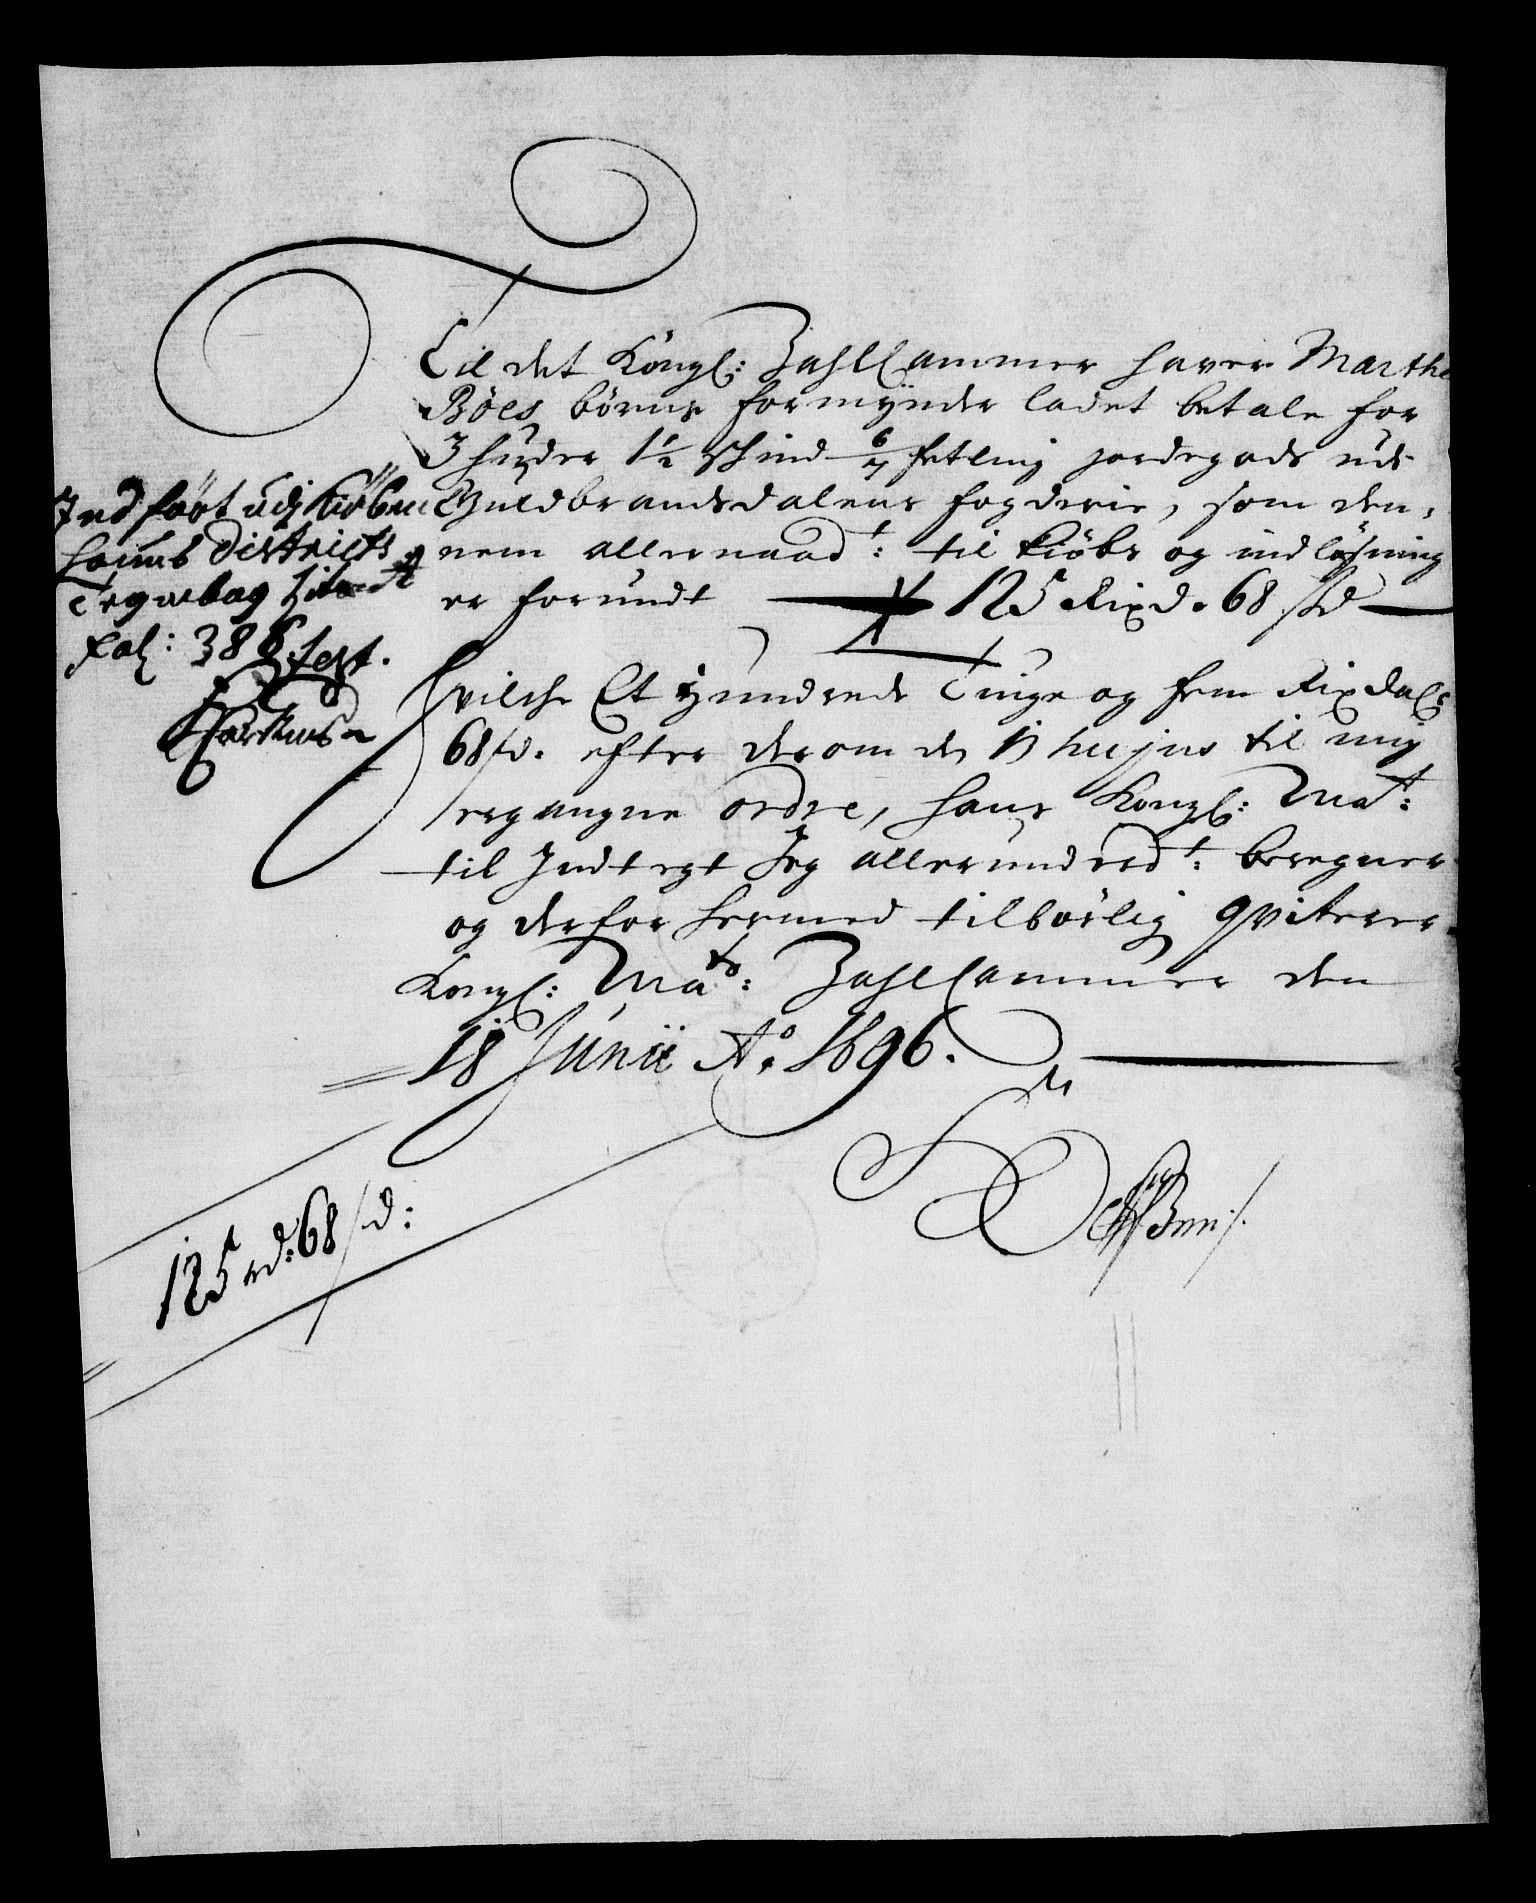 Til det Kongl: Zahlkammer haver Marthe
Böes börns formÿnder ladet betale for
3 huder 1 1/2 schind 6/7 fetling jordegods udi
Guldbrandsdalens fogderie, som den,
nem allernaad t: til kiöbs og indlösning
er forundt 125 Rixd. 68 sk
Hvilche Et Hundrede Tiuge og fem Rixdal:
68 sk. efter derom de 11 hujus til mig
ergangne ordre, hans Kongl: Ma t:
til Indtegt Jeg allerunderd t: beregner
og derfor hermed tilbörlig qviterer
Kongl: Ma ts: Zahlkammer den
18 Junii Ao 1696.
Indfört udj Kiöben
hafns Districts
Tegnebog
Fol: 386 test.
125 rd: 68 sk: